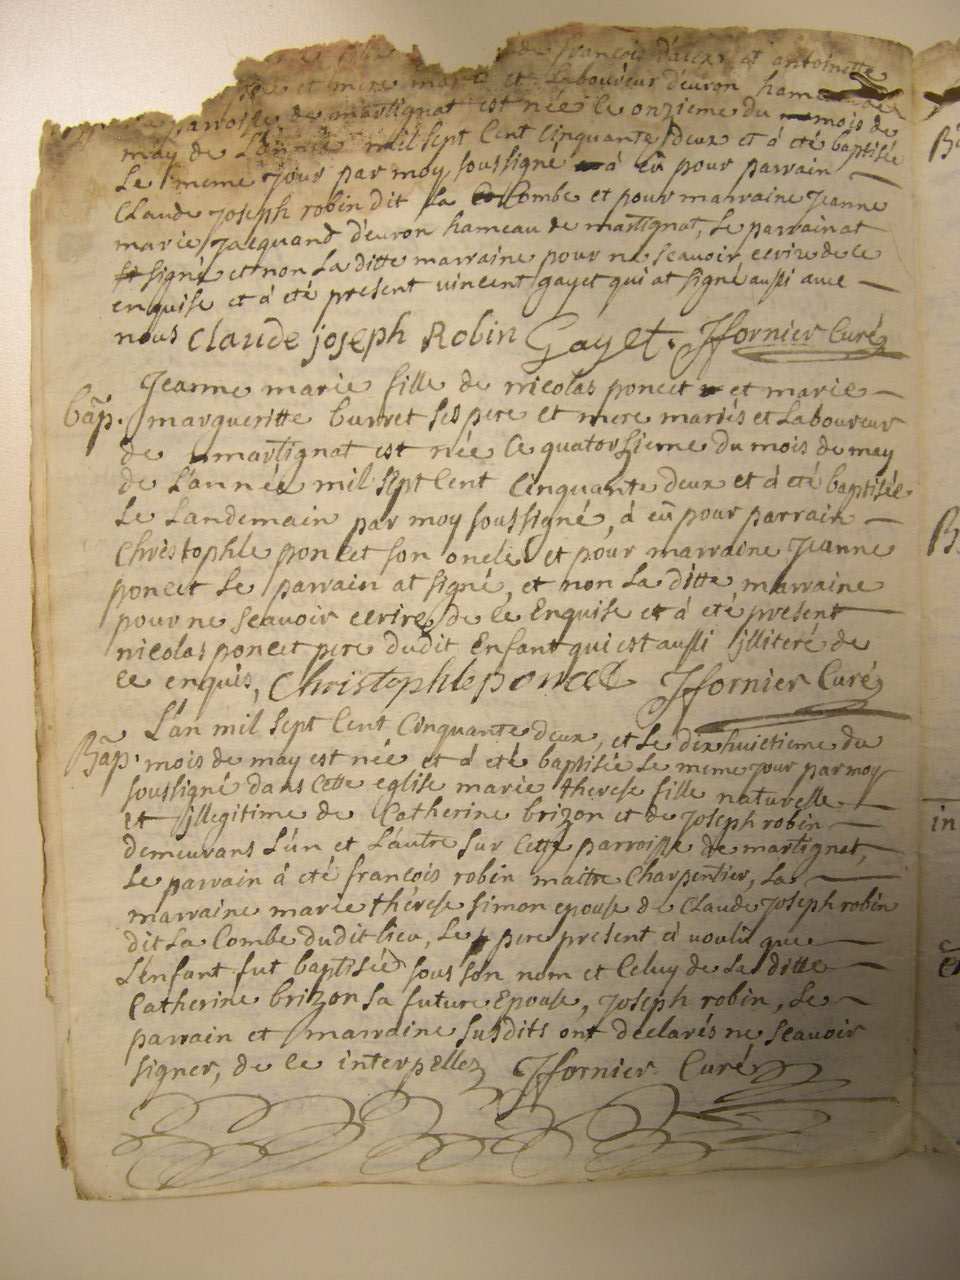 de françois d'aeux et antoinette
pere et mere mariés et Laboureur d'euron hameau
parroisse de martignat est née le onzieme du mois de
may de L'année mil sept Cent Cinquante deux et á été baptisée
Le meme jour par moy soussigné á eû pour parrain
Claude Joseph robin dit La Combe et pour marraine Jeanne
marie Jacquand d'euron hameau de martignat, Le parrain at
signé et non La ditte marraine pour ne sçauoir ecrire de ce
enquise et á été present vincent gayet qui at signé aussi auec
nous Claude joseph Robin Gayet. Jffornier Curé
Bap. Jeanne marie fille de nicolas poncet et marie
margueritte burret ses pere et mere mariés et Laboureur
de martignat est née Le quatorsieme du mois de mey
de L'année mil sept Cent Cinquante deux et á été baptisée
Le Landemain par moy soussigné, á eû pour parrain
Christophle poncet son oncle et pour marraine Jeanne
poncet Le parrain at signé, et non La ditte marraine
pour ne sçauoir ecrire de ce Enquise et á été present
nicolas poncet pere dudit Enfant qui est aussi jlliteré de
ce enquis, Christophle poncet Jffornier Curé
L'an mil sept Cent Cinquante deux, et Le dix huictieme du
Bap. mois de may est née et á été baptisée Le meme jour par moy
soussigné dans Cette eglise marie therese fille naturelle
et jllegitime de Catherine brizon et de Joseph robin
demeurans L'un et L'autre sur Cette parroisse de martignat,
Le parrain á été françois robin maitre Charpentier, La
marraine marie thérese simon epouse de Claude Joseph robin
dit La Combe dudit lieu, Le pere present á voulu que
L'enfant fut baptisée sous son nom et Celuy de La ditte
Catherine brizon sa future Epouse, Joseph robin, Le
parrain et marraine susdits ont declarés ne sçauoir
signer, de ce interpellez Jffornier Curé